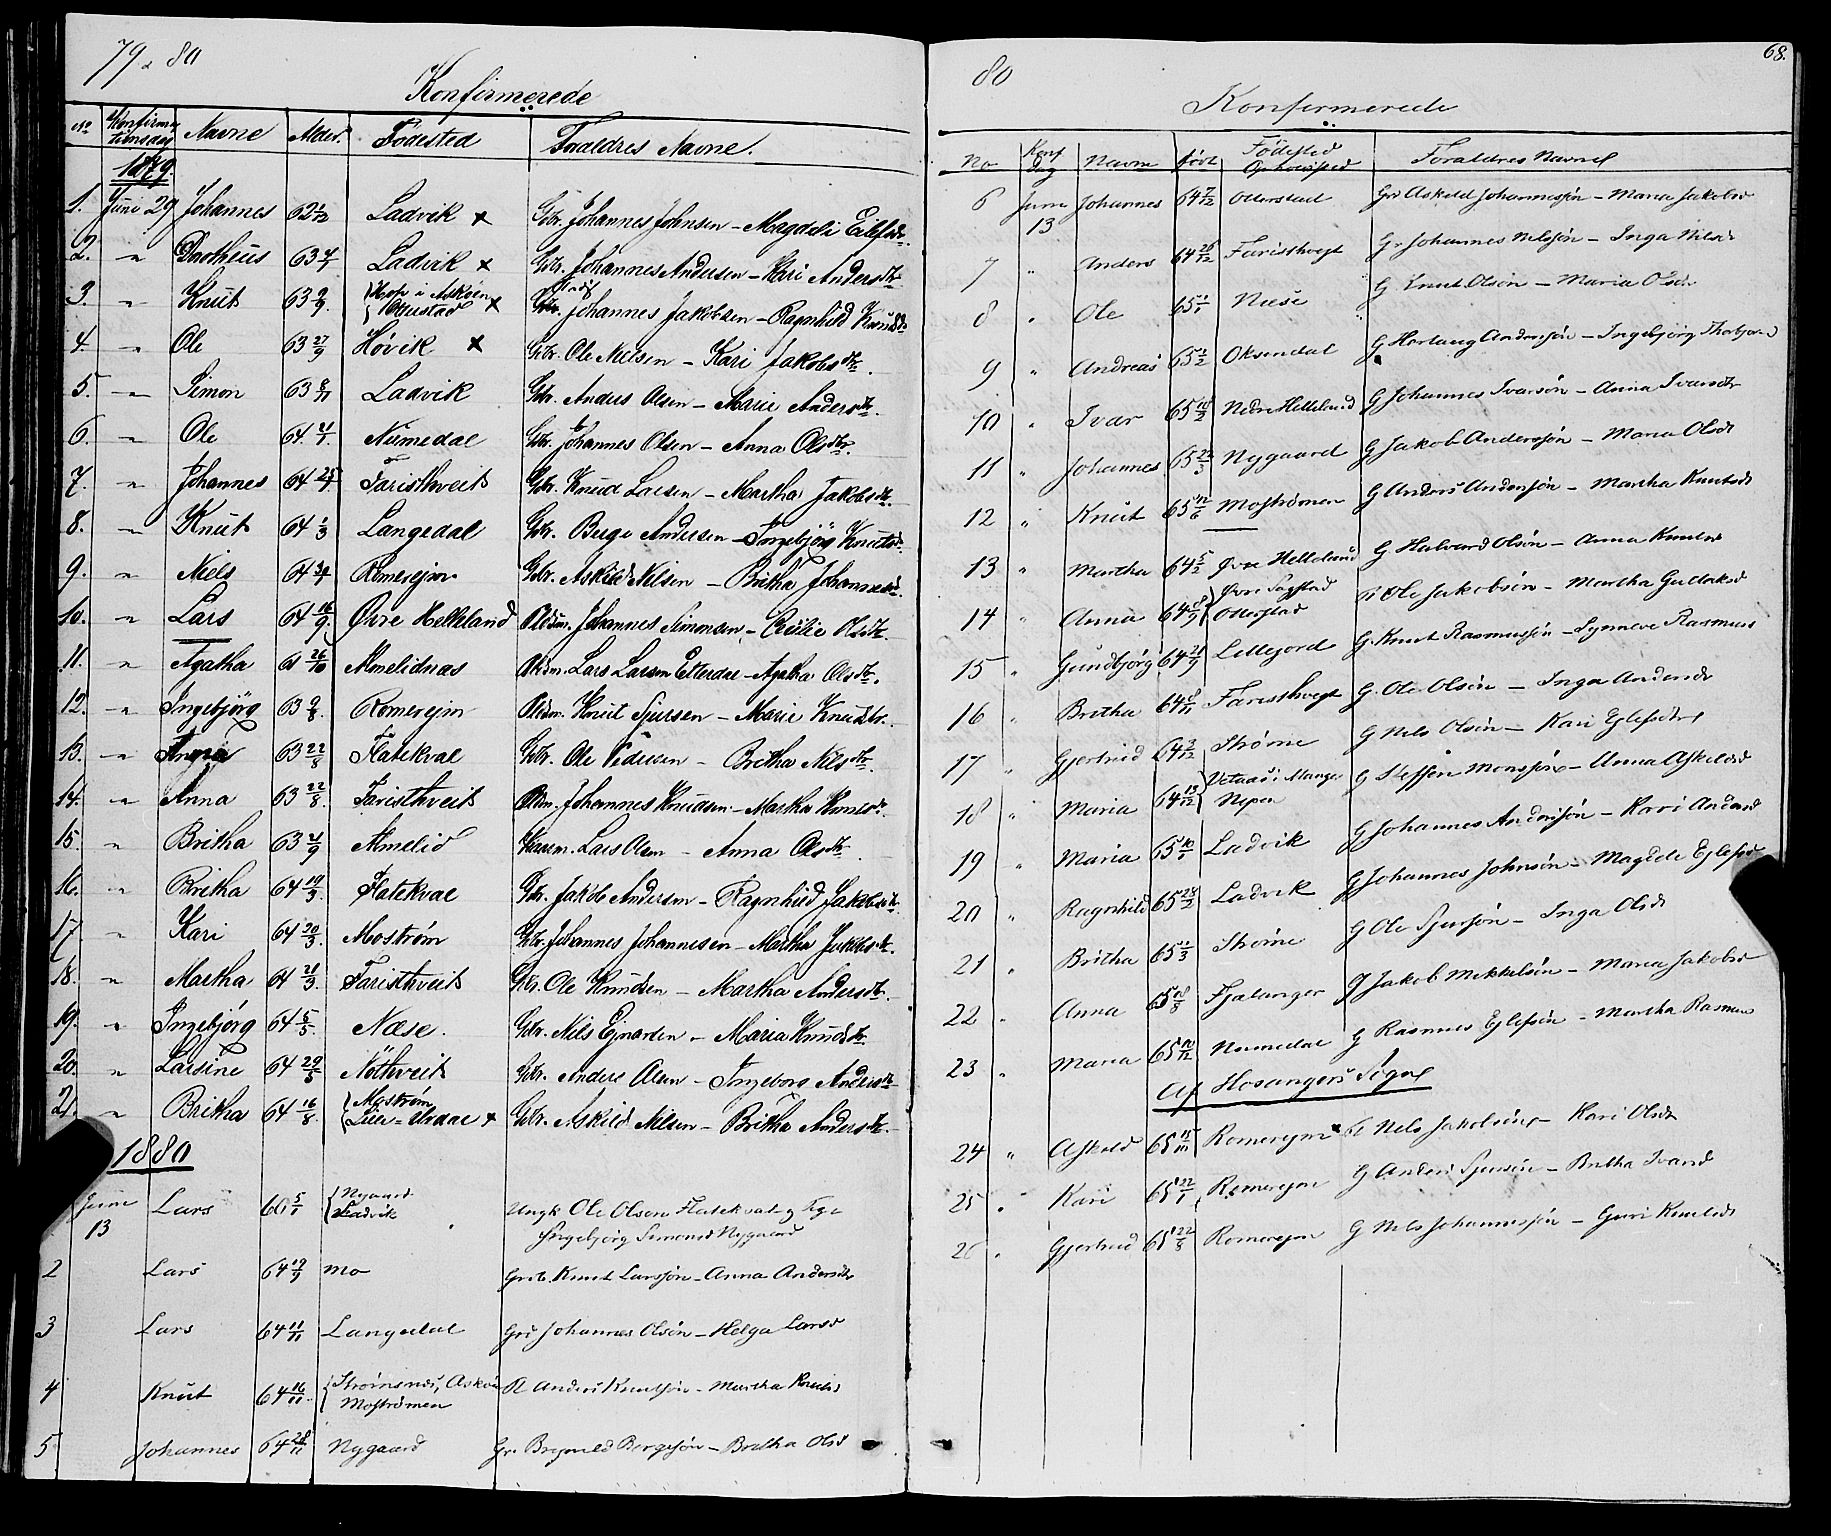 79 & 80
Konfirmerede
No Konfirmationsdag Navne Alder Fødested Foraldres Navne.
1879.
1. Juni 29 Johannes 62 1/12 Ladvik x Gbr. Johannes Johnsen - Magdeli Eilefsdtr.
2. " Dortheus 63 4/7 Ladvik x Gbr. Johannes Andersen - Kari Andersdtr.
3. " Knut 63 9/9 Hop i Askøen x Gbr. Johannes Jakobsen - Ragnhild Knudsdtr
Otterstad
4. " Ole 63 27/9 Høvik x Gbr. Ole Nilsen - Kari Jakobsdtr.
5. " Simon 63 8/11 Ladvik Gbr. Anders Olsen - Marie Andersdtr.
6. " Ole 64 21/1 Numedal Gbr. Johannes Olsen - Anna Olsdtr.
7. " Johannes 64 Faristhveit Gbr. Knud Larsen - Martha Jakobsdtr.
8. " Knut 64 1/3 Langedal Gbr. Berge Andersen - Ingebjörg Knutsdtr.
9. " Niels 64 Romerejm Gbr. Askild Nilsen - Britha Johannesdtr.
10. " Lars 64 16/9 Øvre Helleland Pldsm. Johannes Simonsen - Cecilie Olsdtr.
11. " Agatha 61 26/10 Almelidnæs Pldsm. Lars Larsen Etterdal - Agatha Olsdtr.
12. " Ingebjörg 63 9/8 Romerejm Pldsm. Knut Sjursen - Marie Knudsdtr.
13. " 63 22/8 Flatekval Gbr. Ole Pedersen - Britha Nilsdtr.
14. " Anna 63 22/8 Faristhveit Pldsm. Johannes Knudsen - Martha Knutsdtr.
15. " Britha 63 21/9 Almelid Huusm. Lars Olsen - Anna Olsdtr.
16. " Britha 64 19/3 Flatekval Gbr. Jakob Andersen - Ragnhild Jakobsdtr.
17 " Kari 64 20/3 Mostrøm Gbr. Johannes Johannesen - Martha Jakobsdtr.
18. " Martha 64 21/3 Faristhveit Gbr. Ole Knudsen - Martha Andersdtr.
19. " Ingebjörg 64 5/5 Næse. Gbr. Nils Ejnarsen - Maria Knudsdtr
20. " Larsine 64 29/5 Nöthveit Gbr. Anders Olsen - Ingeborg Andersdtr
21. " Britha 64 16/8 Mostrøm Gbr. Askild Nilsen - Britha Andersdtr.
Lille-Urdal x
1880
Juni 13 Lars 60 5/1 Nygaard Ungk. Ole Olsen Flatekval og Pige
Ladvik Ingebjörg Simonsd Nygaard
2 Lars 64 19/9 Mo Grdb. Knut Larsøn - Anna Andersdtr
3 Lars 64 11/11 Langedal Grd Johannes Olsön - Helga Larsd
4 Knut 64 16/11 Strömsnes, Askøen Pl Anders Knutsøn - Martha Knutsd
Mostrømen
5 Johannes 64 28/11 Nygaard Gr. Brynild Bergesøn - Britha Olsd
80 68.
Konfirmerede
No Konf dag Navne født Fødested Opholdssted Foraldres Navne
6 Juni 13 Johannes 64 7/12 Otterstad Grd Askild Johannessøn - Maria Jakobsd
7 " Anders 64 26/12 Faristhvegt G. Johannes Nilssøn - Inga Nilsd
8 " Ole 65 Næse G Knut Olsøn - Maria Olsdr
9 " Andreas 65 Oksendal G Herlaug Anderssøn - Ingebjörg Thorbjørnsd
10 " Ivar 65 Nedre Helleland G Johannes Ivarsøn - Anna Ivarsdtr
11 " Johannes 65 22/3 Nygaard G Jakob Anderssøn - Maria Olsdr
12 " Knut 65 12/6 Mostrømen G Anders Anderssøn - Martha Knutsdr
13 " Martha 64 5/2 Øvre Helleland G Halvard Olsøn - Anna Knutsdr
14 " Anna 64 Øvre Sagstad Pl Ole Jakobsøn - Martha Gullaksd
Otterstad
15 " Gundbjörg 64 21/9 Lillejord G. Knut Rasmussøn - Synneve Rasmusd
16 " Britha 64 Faristhvegt G. Ole Olsøn - Inga Andersdr
17 " Gjertrud 64 3/12 Strøme G Nils Olsøn - Kari Ejlefsdtr
18 " Maria 64 13/12 Manger G Steffen Monssøn - Anna Askildsd
19 " Maria 65 Ladvik G Johannes Anderssøn - Kari Andersd
20 " Ragnhild 65 28/2 Ladvik G Johannes Johnsøn - Magdele Ejlefsd
21 " Britha 65 1/3 Strøme G Ole Sjursøn - Inga Olsdr
22 " Anna 65 Fjalanger G Jakob Mikkelsøn - Maria Jakobsd
23 " Maria 65 10/12 Numedal G Rasmus Ejlefsøn - Martha Rasmusd
Af Hosangers Sogn
24 " Askild 65 Romerejm Pl Nils Jakobsøn - Kari Olsdr
25 " Kari 65 22/1 Romerejm G Anders Sjursøn - Britha Ivarsd
26 " Gjertrud 65 22/8 Romerejm G Nils Johannessøn - Guri Knutsdr